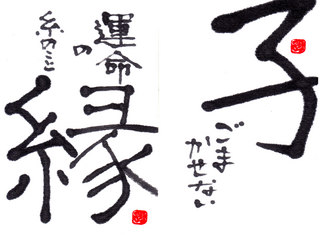 子
ごま
かせない
運命
の
糸の
縁